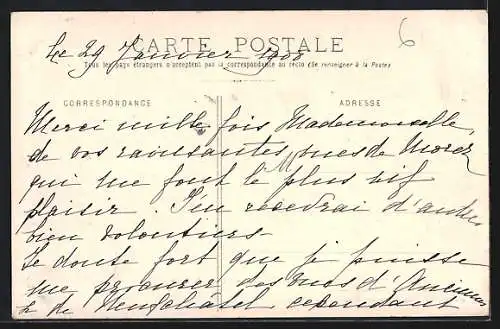 6
CARTE POSTALE
Le 29 Janvier 1908
Tous les pays étrangers n'acceptent pas la correspondance au recto (Se renseigner à la Poste)
CORRESPONDANCE
ADRESSE
Merci mille fois Mademoiselle,
de vos ravissantes vues de Morez
qui me font le plus vif
plaisir. J'en recevrai d'autres
bien volontiers
Je doute fort que je puisse
me procurer des vues d'
de Neufchâtel cependant